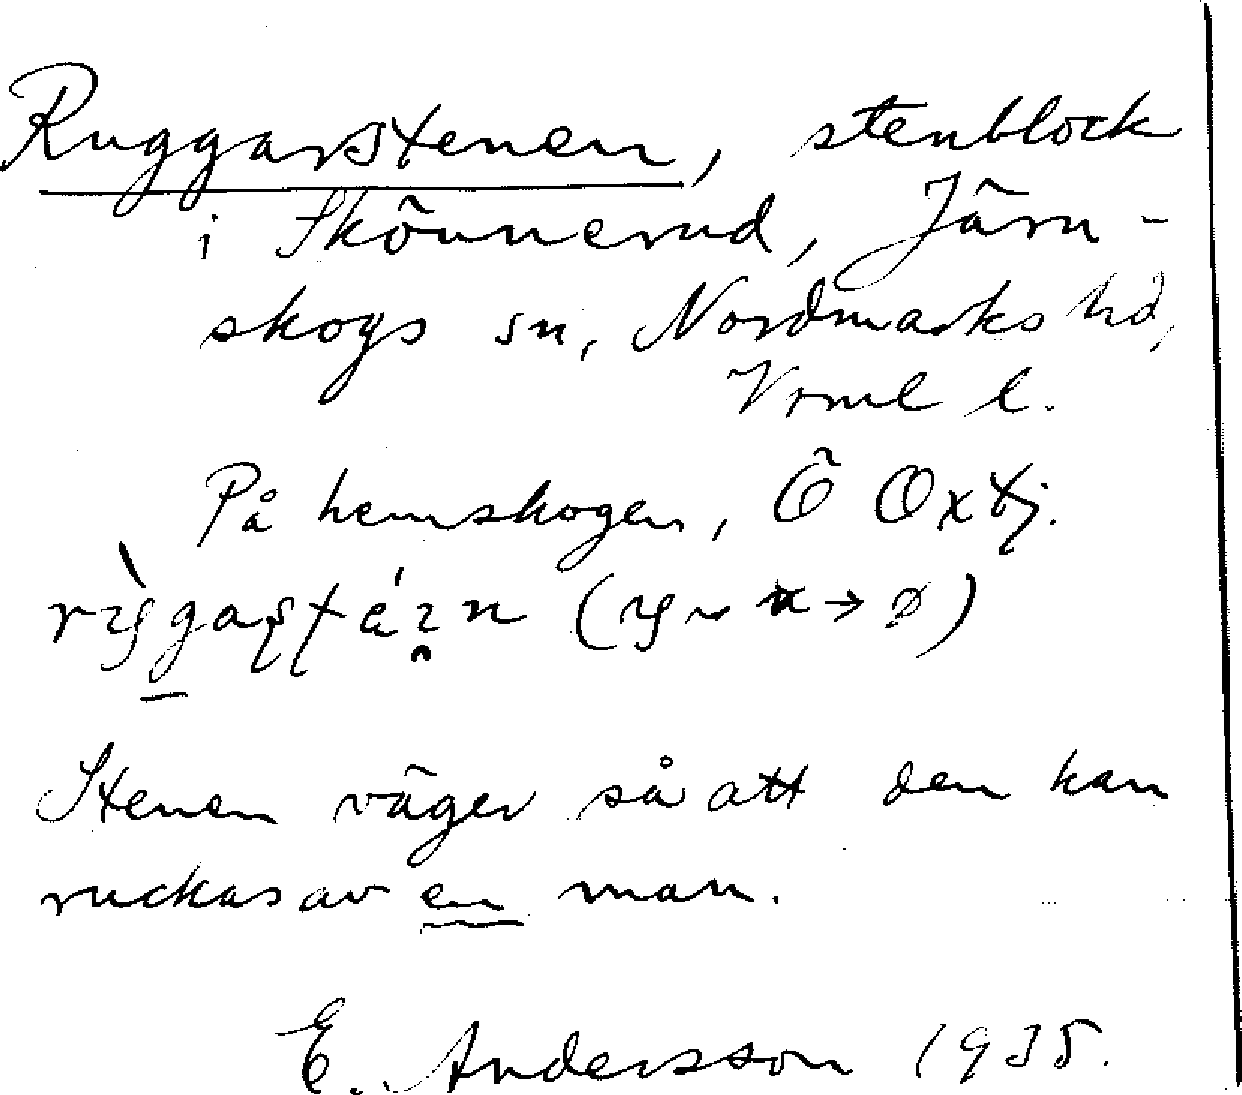 Ruggarstenen, stenblock
i Skönnerud, Järn-
skogs sn, Nordmarks hd,
Vrml l.
På hemskogen, Ö Oxtj.
Stenen väger så att den kan
ruckas av en man.
E. Andersson 1935.